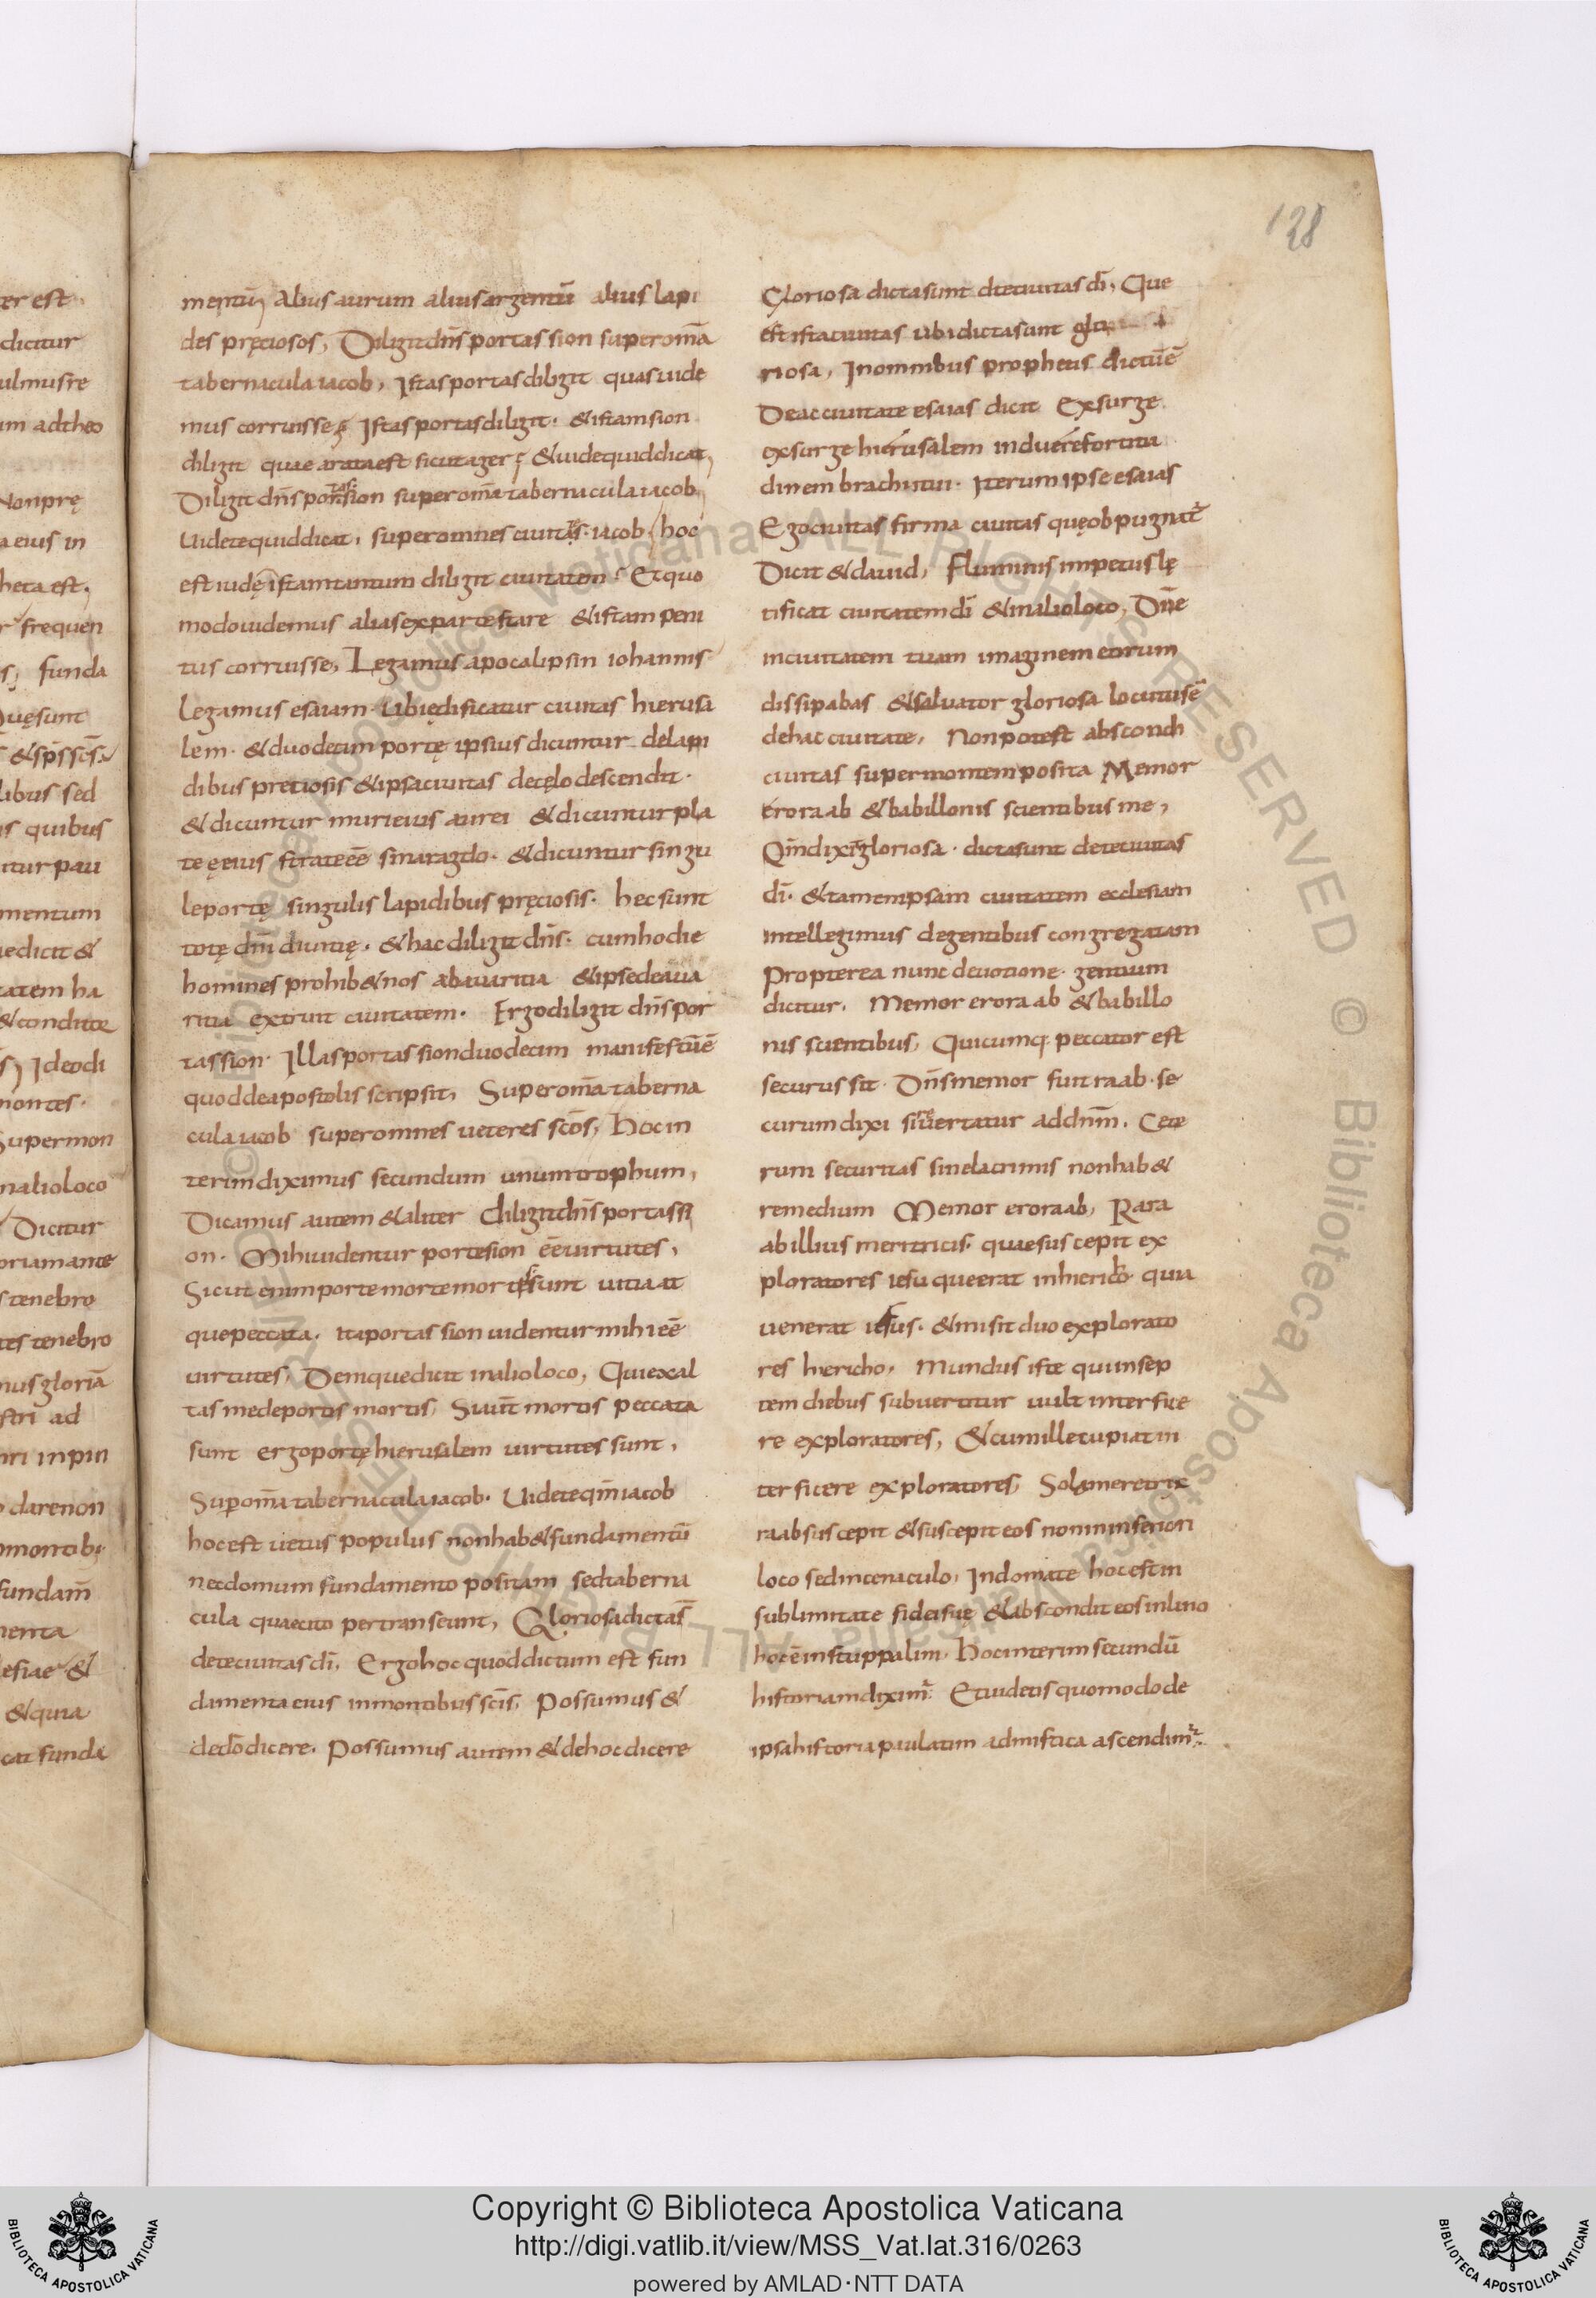 128
ter est.
dicitur
ulmusre
um adtheo
Nonprę
aeius in
heta est.
frequen
funda
Quęsunt
&sp̄ssc̄s.
libus sed
is quibus
itur pau
mentum
aedicit &
tatem ha
&condite
Ideodi
montes.
Supermon
inalioloco
Dicitur
orumante
stenebro
tes tenebro
nusgloriā
stri ad
ari inpin
o darenon
montib;
fundam̄
menta
lesiae &
&quia
cat funda
mentū, Alius aurum aliusargentū alius lapi
des pręciosos, Diligitdn̄s portas sion superom̄a
tabernacula iacob, Istasportasdiligit quasuide
mus corruisse, Istas portasdiligit. &istamsion
diligit quae arataest sicutager; &uidequiddicat,
Diligit dn̄s portassion superom̄a tabernacula iacob,
Uidetequiddicat, superomnes ciuitates. iacob. hoc
estiudę istamtantum diligit ciuitatem. Etquo
modouidemus aliasexparte stare &istam peni
tus corruisse, Legamus apocalipsin iohannis
Legamus esaiam. Ubiędificatur ciuitas hierusa
lem. &duodecim portę ipsius dicuntur delapi
dibus pretiosis &ipsaciuitas decęlo descendit.
&dicuntur murieius aurei &dicuntur pla
teęeius strateēē smaragdo. &dicuntur singu
leportę singulis lapidibus pręciosis. hec sunt
totę dn̄i diuitię. &hac diligit dn̄s. cumhodie
homines prohib&nos abauaritia &ipsedeaua
ritia extruit ciuitatem. Ergodiligit dn̄s por
tas sion. Illas portas sionduodecim manifestū ē
quoddeapostolis scripsit, Superom̄a taberna
cula iacob superomnes ueteres scōs, Hoc in
terimdiximus secundum unumtrophum,
Dicamus autem &aliter diligitdn̄s portassi
on. Mihiuidentur portesion eēuirtutes,
Sicut enimportemortemortessunt uitia at
quepeccata. itaportas sion uidentur mihi eē
uirtutes, Deniquedicit inalioloco, Quiexal
tas medeportis mortis, Sicut mortis peccata
sunt ergoportęhierusalem uirtutes sunt,
Suꝑom̄a tabernacula iacob. Uideteqm̄iacob
hocest uetus populus nonhab&fundamentū
necdomum fundamento positam sedtaberna
cula quaecito pertranseunt, Gloriosadictas̄
deteciuitas dī, Ergohoc quoddictum est fun
damenta eius inmontibus sc̄is, Possumus &
dedōdicere. Possumus autem &dehocdicere
Gloriosa dictasunt deteciuitas dī, Que
estistaciuitas ubidictasunt glo
riosa, Inomnibus prophetis dictū ē
Deacciuitate esaias dicit Exsurge
exsurge hierusalem induerefortitu
dinem brachiitui. Iterum ipse esaias
Egociuitas firma ciuitas quęobpugnat᷑
Dicit &dauid, Fluminis impetus lę
tificat ciuitatemdī &inalioloco, Dn̄e
inciuitatem tuam imaginem eorum
dissipabas &saluator gloriosa locutusē
dehac ciuitate, Nonpotest abscondi
ciuitas supermontem posita Memor
eroraab &babillonis scientibus me,
Qm̄dixi gloriosa. dictasunt deteciuitas
dī. &tamenipsam ciuitatem ecclesiam
intellegimus degentibus congregatam
Propterea nunc deuotione gentium
dicitur. Memor erora ab &babillo
nis scientibus, Quicumq; peccator est
securus sit. Dn̄smemor fuit raab. se
curum dixi sireuertatur addn̄m. Cete
rum securitas sinelacrimis nonhab&
remedium Memor eroraab, Raa
ab illius meritricis. quaesus cepit ex
ploratores iesu queerat inhiericho. quia
uenerat iesus. &misit duo explorato
res hiericho. Mundus iste quiinsep
tem diebus subuertitur uult interfice
re exploratores, &cumillecupiatin
ter ficere exploratores, Solameretrix
raab suscepit &suscepit eos noninInferiori
loco sedincenaculo, Indomate hocestin
sublimitate fideisue &abscondit eos inlino
hocē instuppalini, Hocinterim secundū
historiamdixim᷑. Etuidetis quomodo de
ipsahistoria paulatim admistica ascendim᷑.
Copyright © Biblioteca Apostolica Vaticana
http://digi.vatlib.it/view/MSS_Vat.lat.316/0263
powered by AMLAD·NTT DATA
BIBLIOTECA APOSTOLICA VATICANA
BIBLIOTECA APOSTOLICA VATICANA